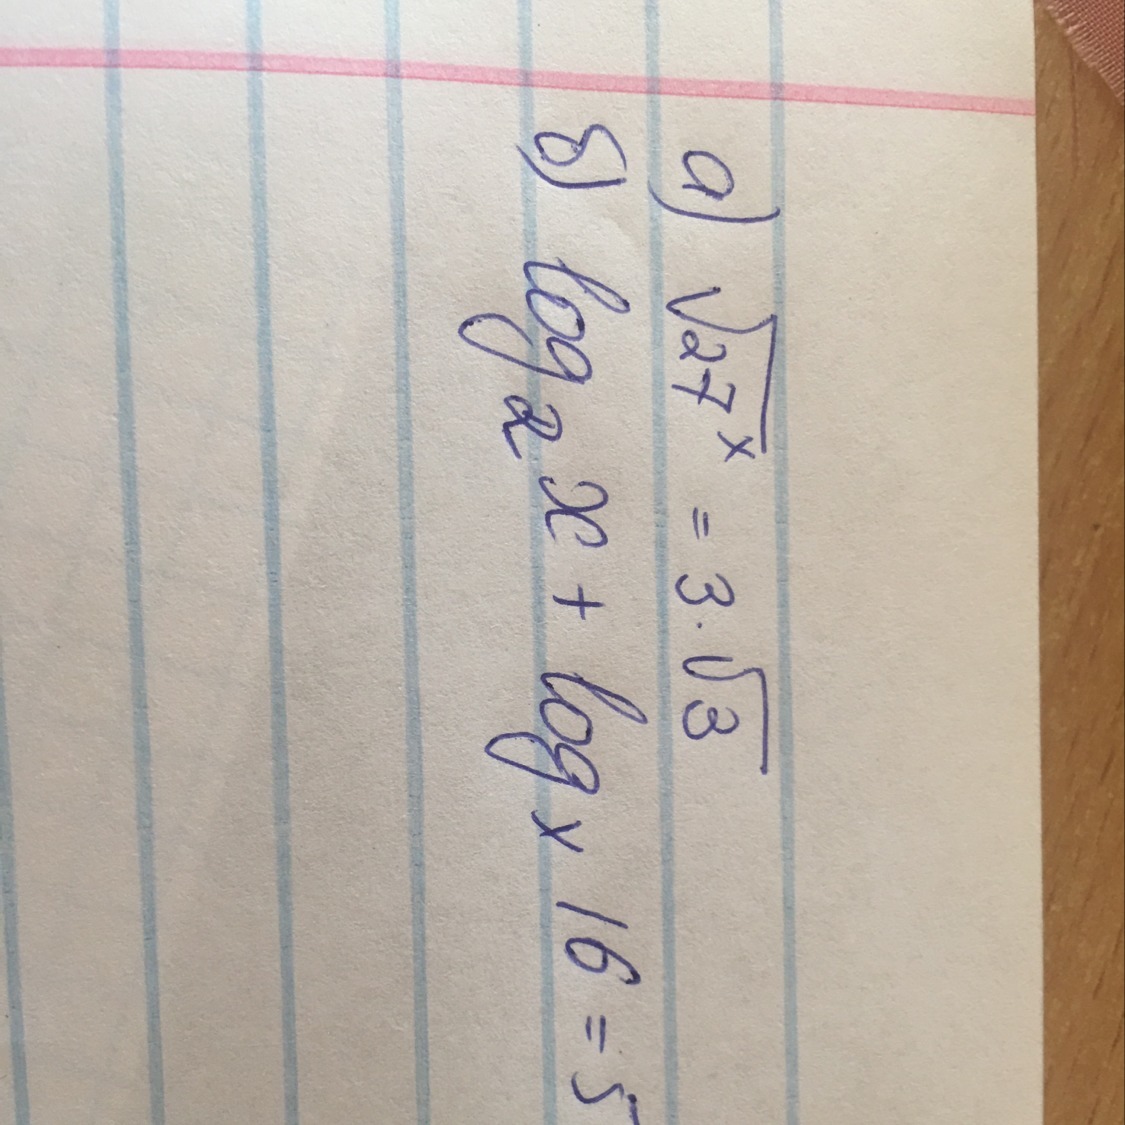 а) √27ˣ = 3·√3
б) log₂ x + logₓ 16 = 5